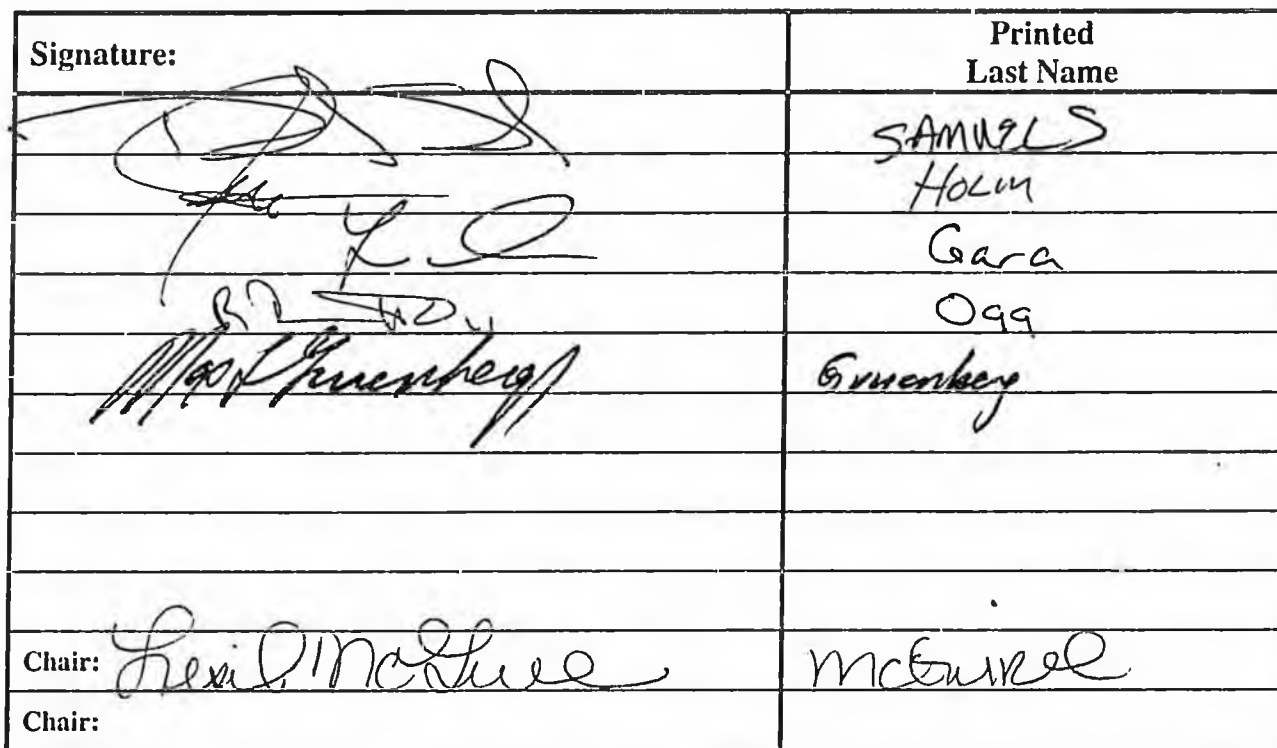 Signature: Printed
Last Name
SAMUELS
HOLM
Gara
Ogg
Max Gruenberg Gruenberg
Chair: Lesil McGuire McGuire
Chair: